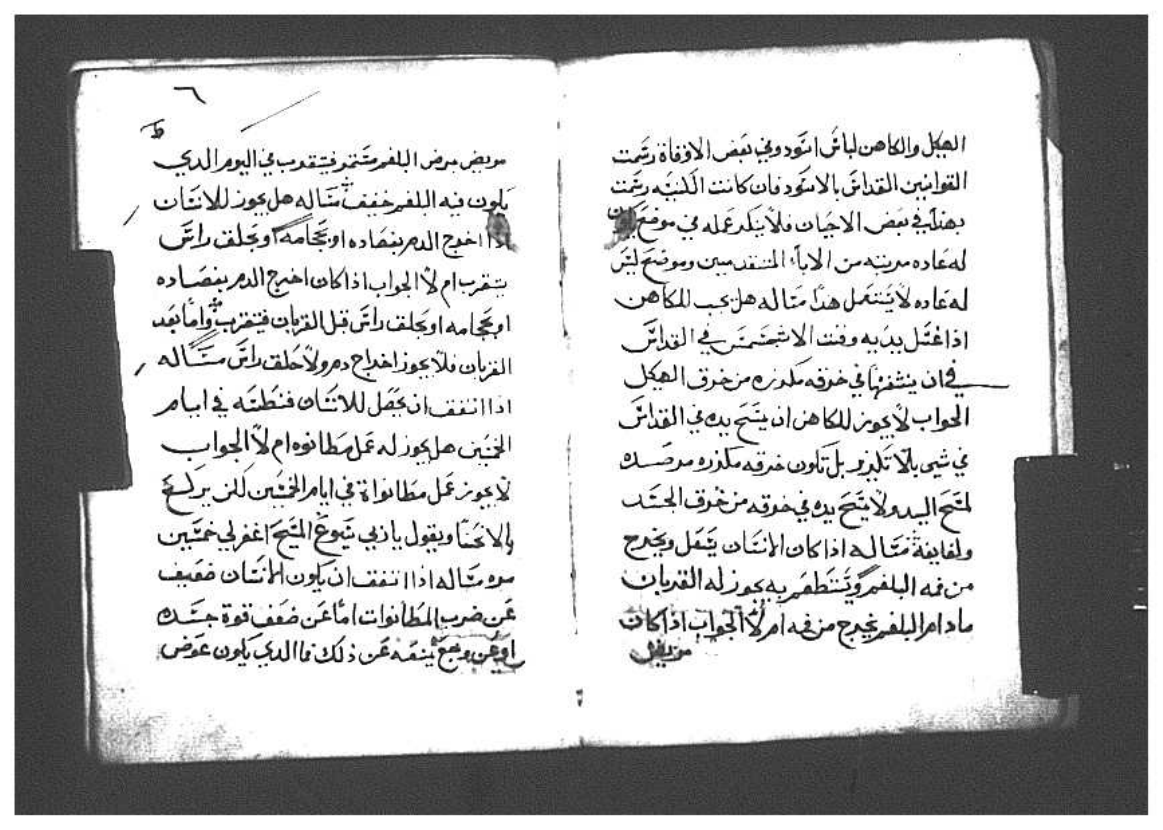 الهيكل والكاهن لباس اسود وفي بعض الاوقاة رسمت
القوانين القداس بالاسود فان كانت الكنيسه رسمت
بهذا في بعض الاحيان فلا ينكر عمله في موضع يكون
له عاده مرتبه من الاباء المتقدمين وموضع ليس
له عاده لا يستعمل هذا مسآله هل يجب للكاهن
اذا غسل يديه وقت الاستحشمس في القداس
في ان ينشفها في خرقه مكرزه من خرق الهيكل
الجواب لا يجوز للكاهن ان يمسح يده في القداس
في شي بلا تكريز بل تكون خرقه مكرزه مرصده
لمسح اليد ولا يمسح يده في خرقه من خرق الجسد
ولفايفة مسآله اذا كان الانسان يسعل ويخرج
من فمه البلغم ويستطعم به يجوز له القربان
مادام البلغم يخرج من فمه ام لا الجواب اذا كان
مريض
٦
ط
مريض مرض البلغم مستمر فيتقرب في اليوم الدي
يكون فيه البلغم خفيف مسآله هل يجوز للانسان
اذا اخرج الدم بفصاده او بحجامه او بحلق راس
يتقرب ام لا الجواب اذا كان اخرج الدم بفصاده
او بحجامه او بحلق راس قبل القربان فيتقرب واما بعد
القربان فلا يجوز اخراج دم ولا حلق راس مسآله
اذا اتفق ان يحصل للانسان في ايام
الخمسين هل يجوز له عمل مطانوه ام لا الجواب
لا يجوز عمل مطانواة في ايام الخمسين لكن يركع
بالانحنا ويقول ياربي يسوع المسيح اغفر لي خمسين
مره مسآله اذا اتفق ان يكون الانسان ضعيف
عن ضرب المطانوات اما عن ضعف قوة جسده
او عن وجع يمنعه عن ذلك فما الدي يكون عوض